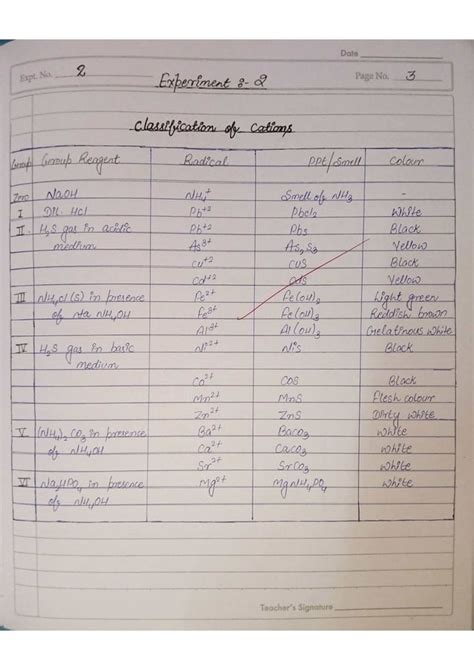 Date
Expt. No. 2
Page No. 3
Experiment :- 2
Classification of Cations
Group Group Reagent Radical PPt/Smell Colour
Zero NaOH NH4+ Smell of NH3 -
I Dil. HCl Pb+2 PbCl2 White
II H2S gas in acitic Pb+2 PbS Black
medium As3+ As2S3 Yellow
Cu+2 CuS Black
Cd+2 CdS Yellow
III NH4Cl(S) in presence Fe2+ Fe(OH)2 Light green
of NH4OH Fe3+ Fe(OH)3 Reddish brown
Al3+ Al(OH)3 Gelatinous white
IV H2S gas in basic Ni2+ NiS Black
medium
Co2+ COS Black
Mn2+ MnS Flesh colour
Zn2+ ZnS Dirty white
V (NH4)2CO3 in presence Ba2+ BaCO3 White
of NH4OH Ca2+ CaCO3 White
Sr2+ SrCO3 White
VI Na2HPO4 in presence Mg2+ MgNH4PO4 White
of NH4OH
Teacher's Signature